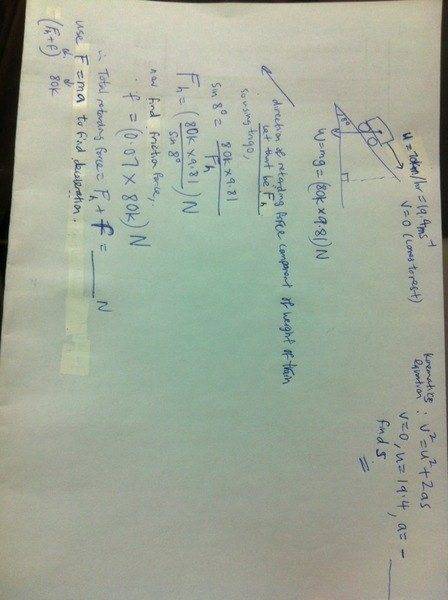 u = 70km/hr = 19.4ms⁻¹
v = 0 (comes to rest)
8°
W = mg = (80k × 9.81) N
direction of retarding force component of weight of train
Let that be Fh
so using trigo,
sin 8° = 80k × 9.81 / Fh
Fh = (80k × 9.81 / sin 8°) N
now find friction force,
f = (0.07 × 80k) N
∴ Total retarding force = Fh + f = ____ N
use F = ma to find deceleration.
(Fh + f) 80k
Kinematics equation : v² = u² + 2as
v = 0, u = 19.4, a = - ____
find s